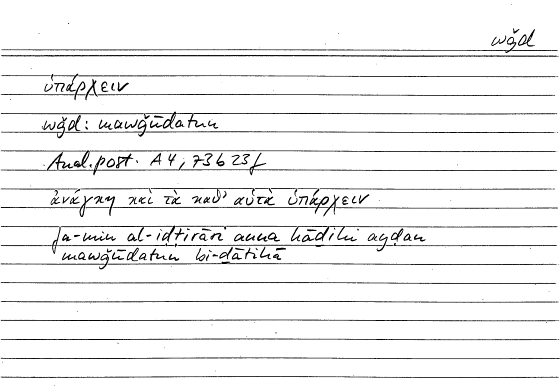 wǧd
ὑπάρχειν
wǧd: mawǧūdatun
Anal. post. A 4, 73 b 23 f
ἀνάγκη καὶ τὰ καθ' αὑτὰ ὑπάρχειν
fa-min al-iḍṭirāri anna hāḏihi ayḍan
mawǧūdatun bi-ḏātihā